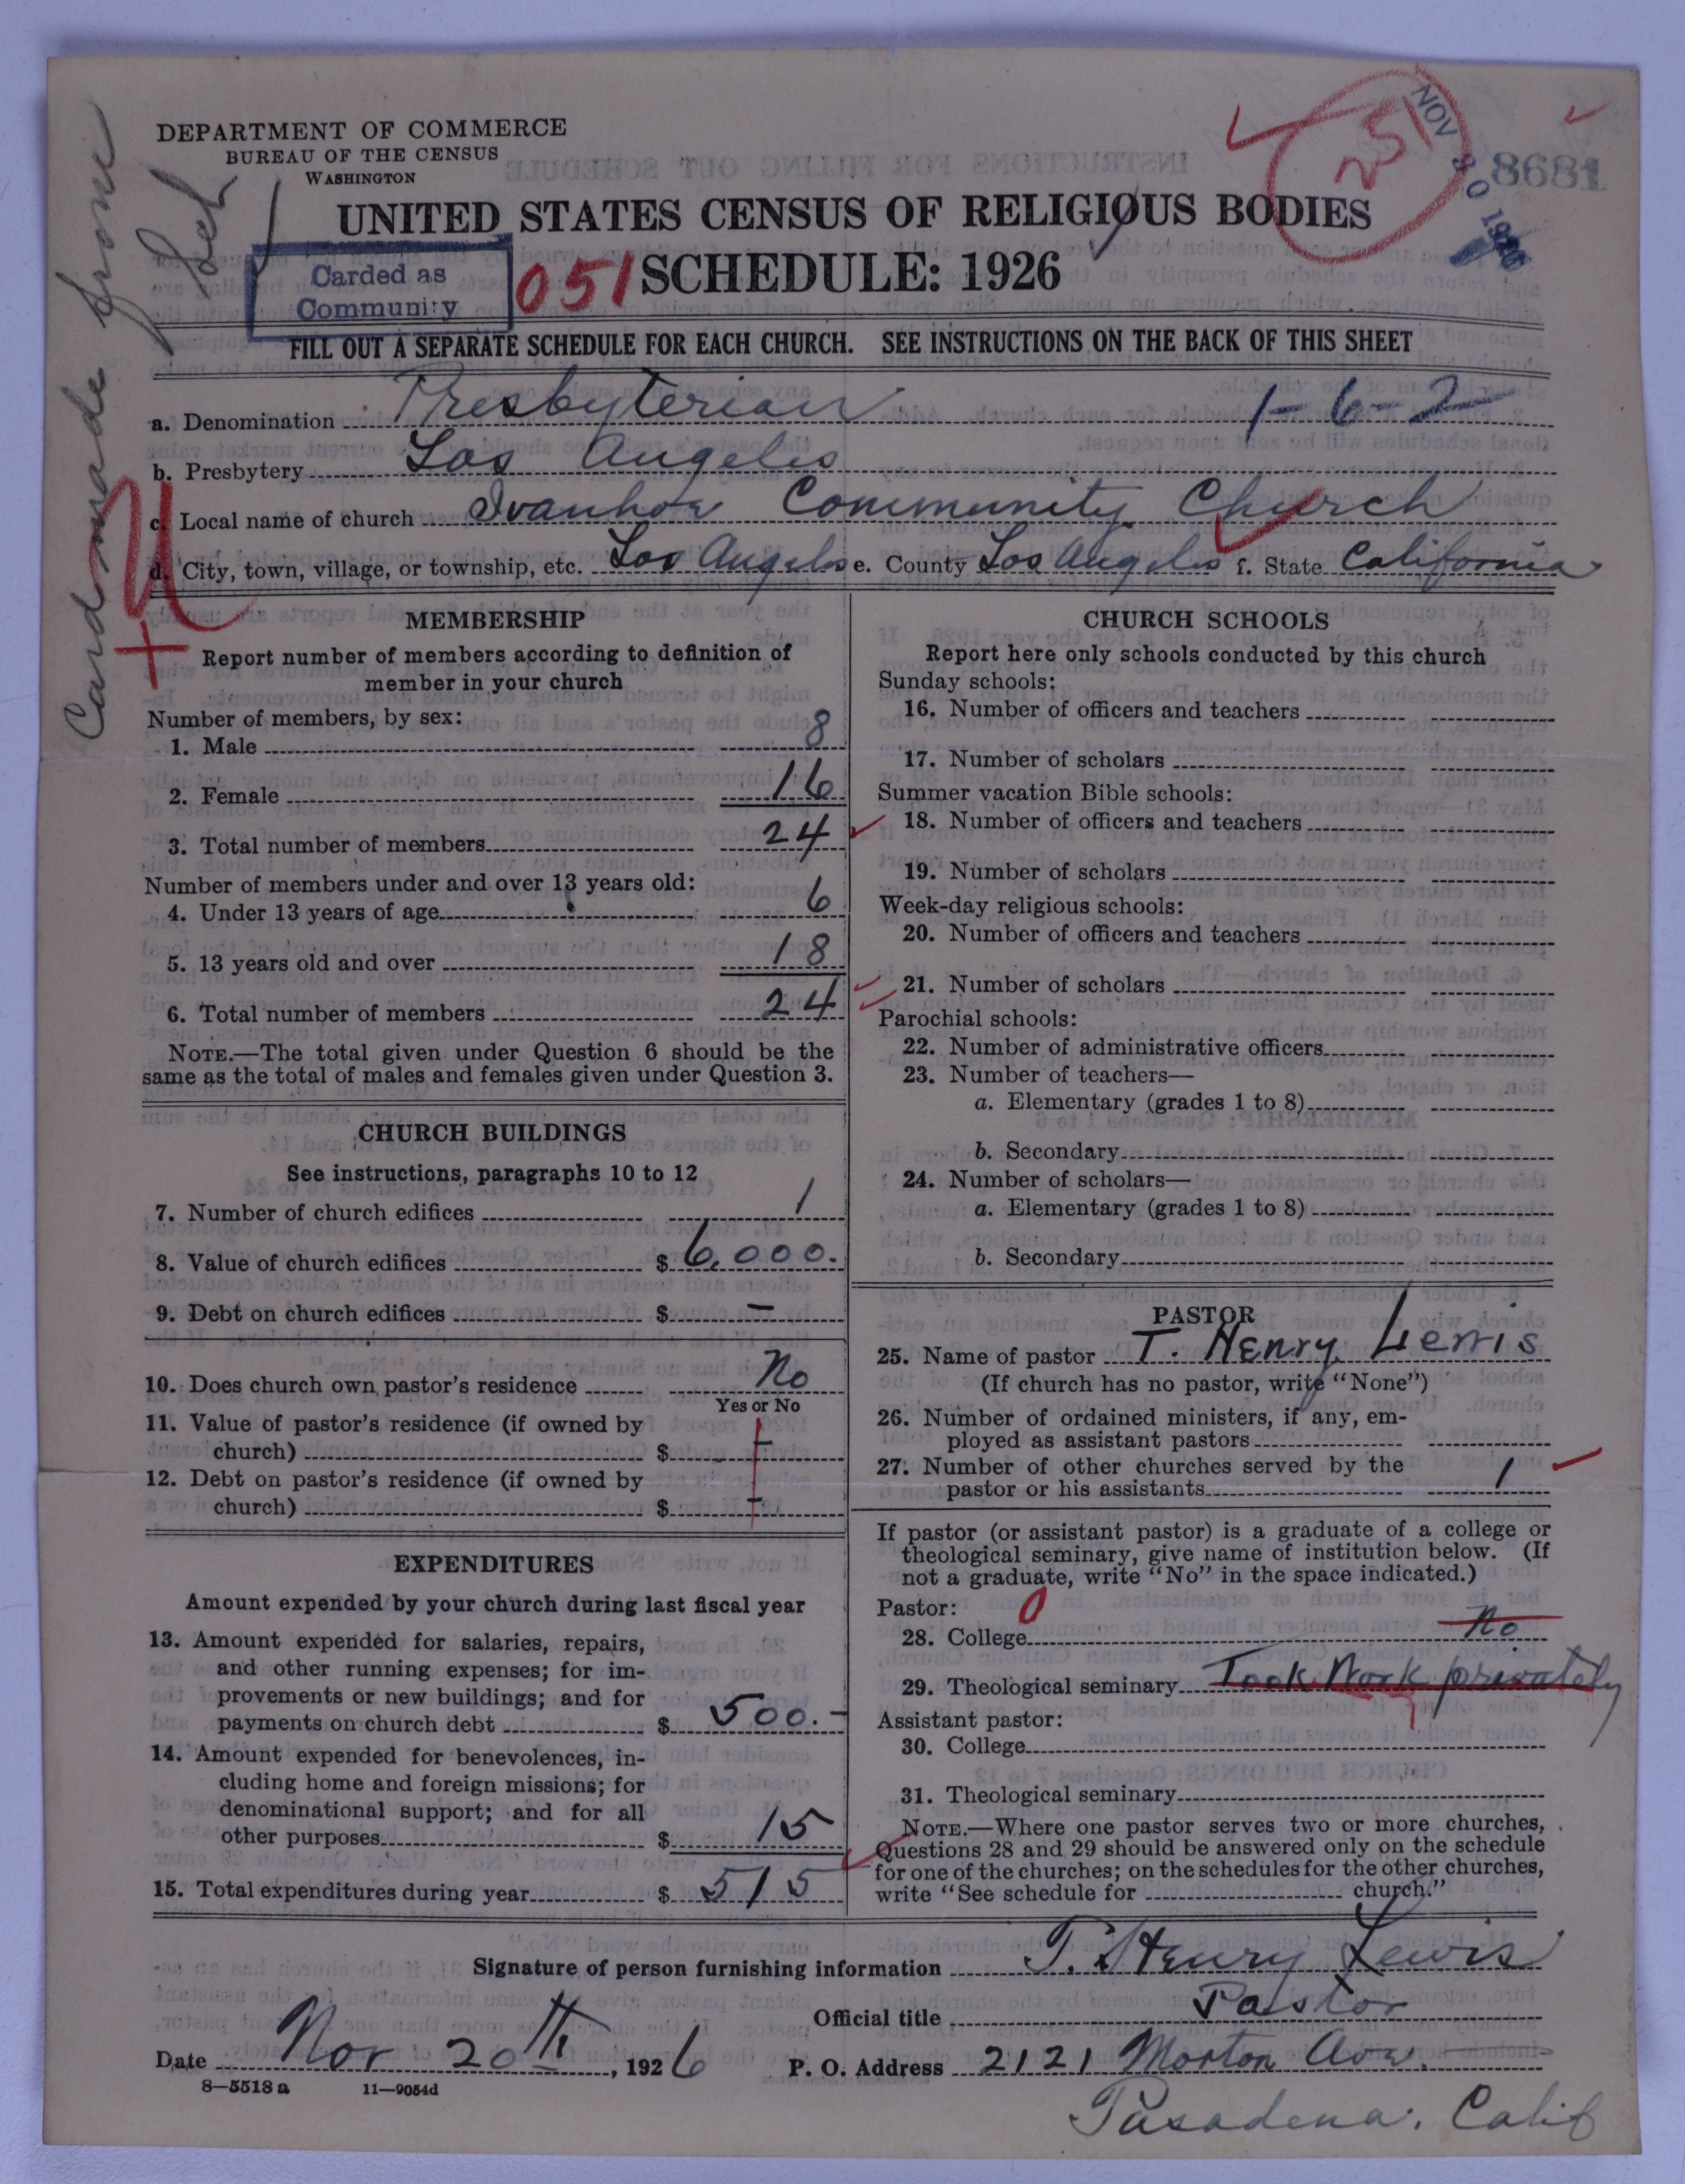 DEPARTMENT OF COMMERCE
BUREAU OF THE CENSUS
WASHINGTON
UNITED STATES CENSUS OF RELIGIOUS BODIES
SCHEDULE: 1926
Carded as
Community
051
251
NOV 30 1926
8681
Card made from
FILL OUT A SEPARATE SCHEDULE FOR EACH CHURCH. SEE INSTRUCTIONS ON THE BACK OF THIS SHEET
a. Denomination Presbyterian 1-6-2
b. Presbytery Los Angeles
c. Local name of church Ivanhoe Community Church
d. City, town, village, or township, etc. Los Angeles e. County Los Angeles f. State California
MEMBERSHIP
Report number of members according to definition of
member in your church
Number of members, by sex:
1. Male 8
2. Female 16
3. Total number of members 24
Number of members under and over 13 years old:
4. Under 13 years of age 6
5. 13 years old and over 18
6. Total number of members 24
NOTE.—The total given under Question 6 should be the
same as the total of males and females given under Question 3.
CHURCH BUILDINGS
See instructions, paragraphs 10 to 12
7. Number of church edifices 1
8. Value of church edifices $ 6,000.
9. Debt on church edifices $ —
10. Does church own pastor's residence No
Yes or No
11. Value of pastor's residence (if owned by
church) $ —
12. Debt on pastor's residence (if owned by
church) $ —
EXPENDITURES
Amount expended by your church during last fiscal year
13. Amount expended for salaries, repairs,
and other running expenses; for im-
provements or new buildings; and for
payments on church debt $ 500.-
14. Amount expended for benevolences, in-
cluding home and foreign missions; for
denominational support; and for all
other purposes $ 15
15. Total expenditures during year $ 515
CHURCH SCHOOLS
Report here only schools conducted by this church
Sunday schools:
16. Number of officers and teachers
17. Number of scholars
Summer vacation Bible schools:
18. Number of officers and teachers
19. Number of scholars
Week-day religious schools:
20. Number of officers and teachers
21. Number of scholars
Parochial schools:
22. Number of administrative officers
23. Number of teachers—
a. Elementary (grades 1 to 8)
b. Secondary
24. Number of scholars—
a. Elementary (grades 1 to 8)
b. Secondary
PASTOR
25. Name of pastor T. Henry Lewis
(If church has no pastor, write "None")
26. Number of ordained ministers, if any, em-
ployed as assistant pastors
27. Number of other churches served by the
pastor or his assistants 1
If pastor (or assistant pastor) is a graduate of a college or
theological seminary, give name of institution below. (If
not a graduate, write "No" in the space indicated.)
Pastor: 0
28. College No
29. Theological seminary Took Work privately
Assistant pastor:
30. College
31. Theological seminary
NOTE.—Where one pastor serves two or more churches,
Questions 28 and 29 should be answered only on the schedule
for one of the churches; on the schedules for the other churches,
write "See schedule for church."
Signature of person furnishing information T. Henry Lewis
Official title Pastor
Date Nov 20th, 1926 P. O. Address 2121 Morton Ave.
Pasadena. Calif
8—5518 a 11—9054d